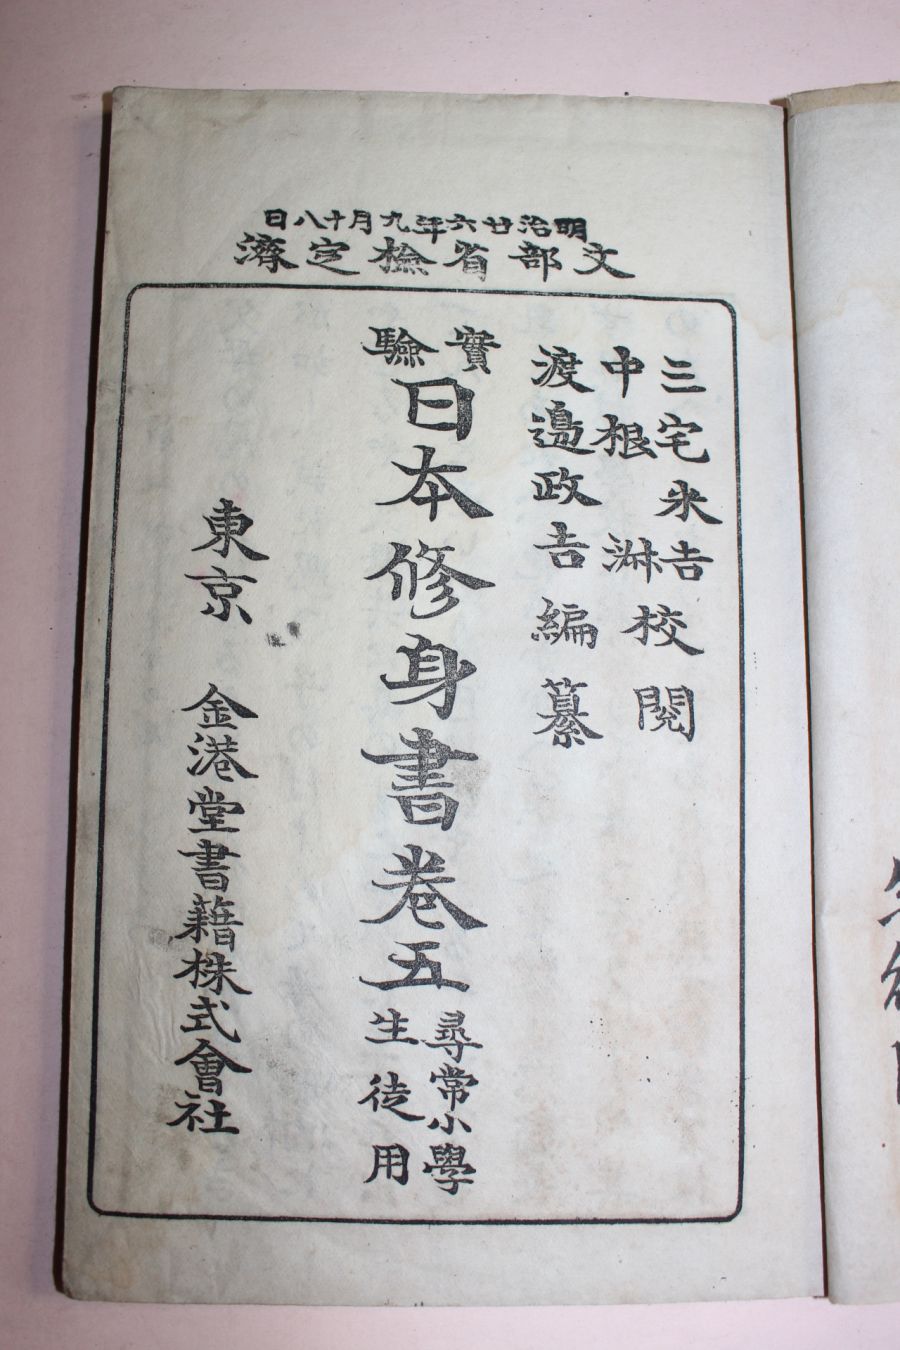 明治廿六年九月十八日
文部省檢定濟
三宅米吉
中根淋
校閲
渡邉政吉編纂
實驗
日本修身書卷五
尋常小學
生徒用
東京 金港堂書籍株式會社